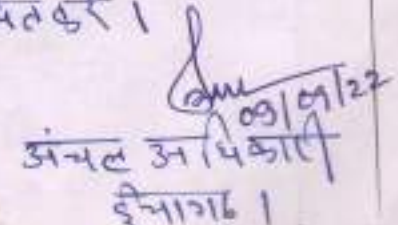 करें।
09/09/22
अंचल अधिकारी
ईचागढ़।